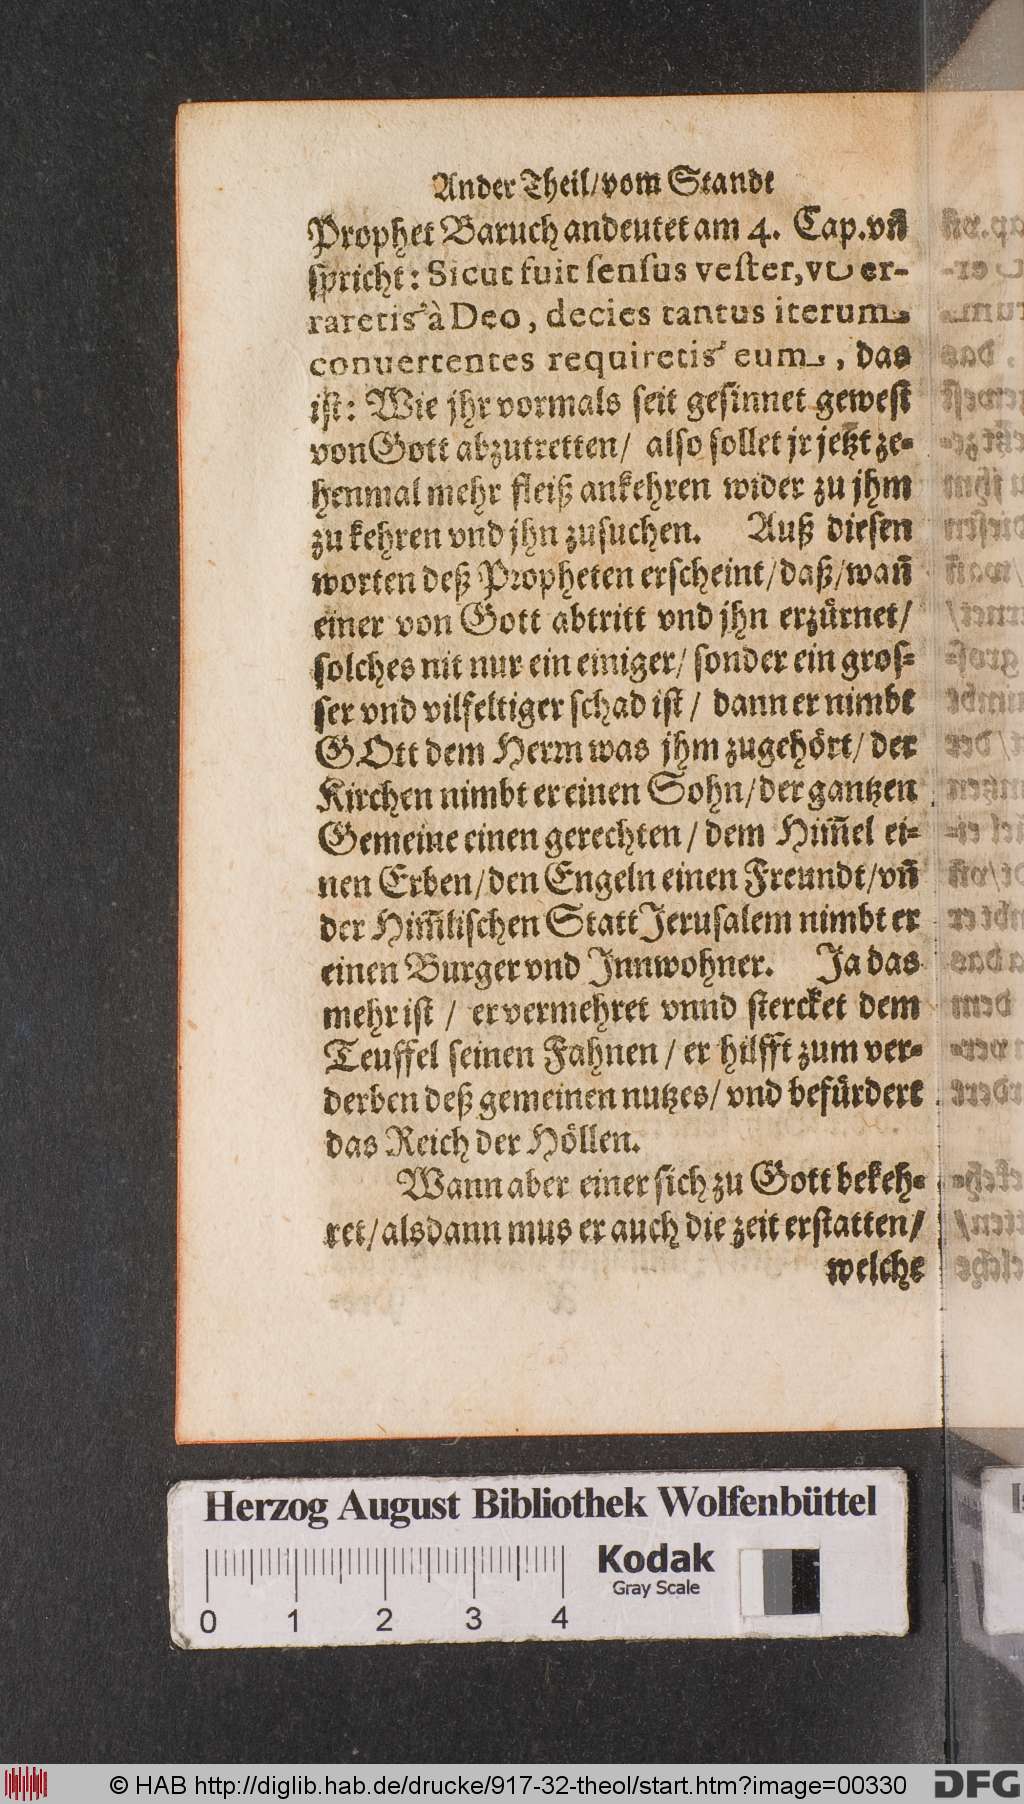 Ander Theil/vom Stande
Prophet Baruch andeutet am 4. Cap.vn̄
ſpricht: Sicut fuit ſenſus veſter, vt er-
raretis à Deo, decies tantus iterum
conuertentes requiretis eum, das
iſt: Wie jhr vormals ſeit geſinnet geweſt
von Gott abzutretten/ alſo ſollet jr jetzt ze-
henmal mehr fleiß ankehren wider zu jhm
zu kehren vnd jhn zuſuchen. Auß dieſen
worten deß Propheten erſcheint/daß/wan̄
einer von Gott abtritt vnd jhn erzürnet/
ſolches nit nur ein einiger/ ſonder ein groſ-
ſer vnd vilfeltiger ſchad iſt / dann er nimbt
GOtt dem Herrn was jhm zugehört/ der
Kirchen nimbt er einen Sohn/der gantzen
Gemeine einen gerechten / dem Him̄el ei-
nen Erben/den Engeln einen Freundt/vn̄
der Him̄liſchen Statt Jeruſalem nimbt er
einen Burger vnd Innwohner. Ja das
mehr iſt / er vermehret vnnd ſtercket dem
Teuffel ſeinen Fahnen / er hilfft zum ver-
derben deß gemeinen nutzes/ vnd befürdert
das Reich der Höllen.
Wann aber einer ſich zu Gott bekeh-
ret/alsdann mus er auch die zeit erſtatten/
welche
Herzog August Bibliothek Wolfenbüttel
Kodak
Gray Scale
0 1 2 3 4
© HAB http://diglib.hab.de/drucke/917-32-theol/start.htm?image=00330
DFG